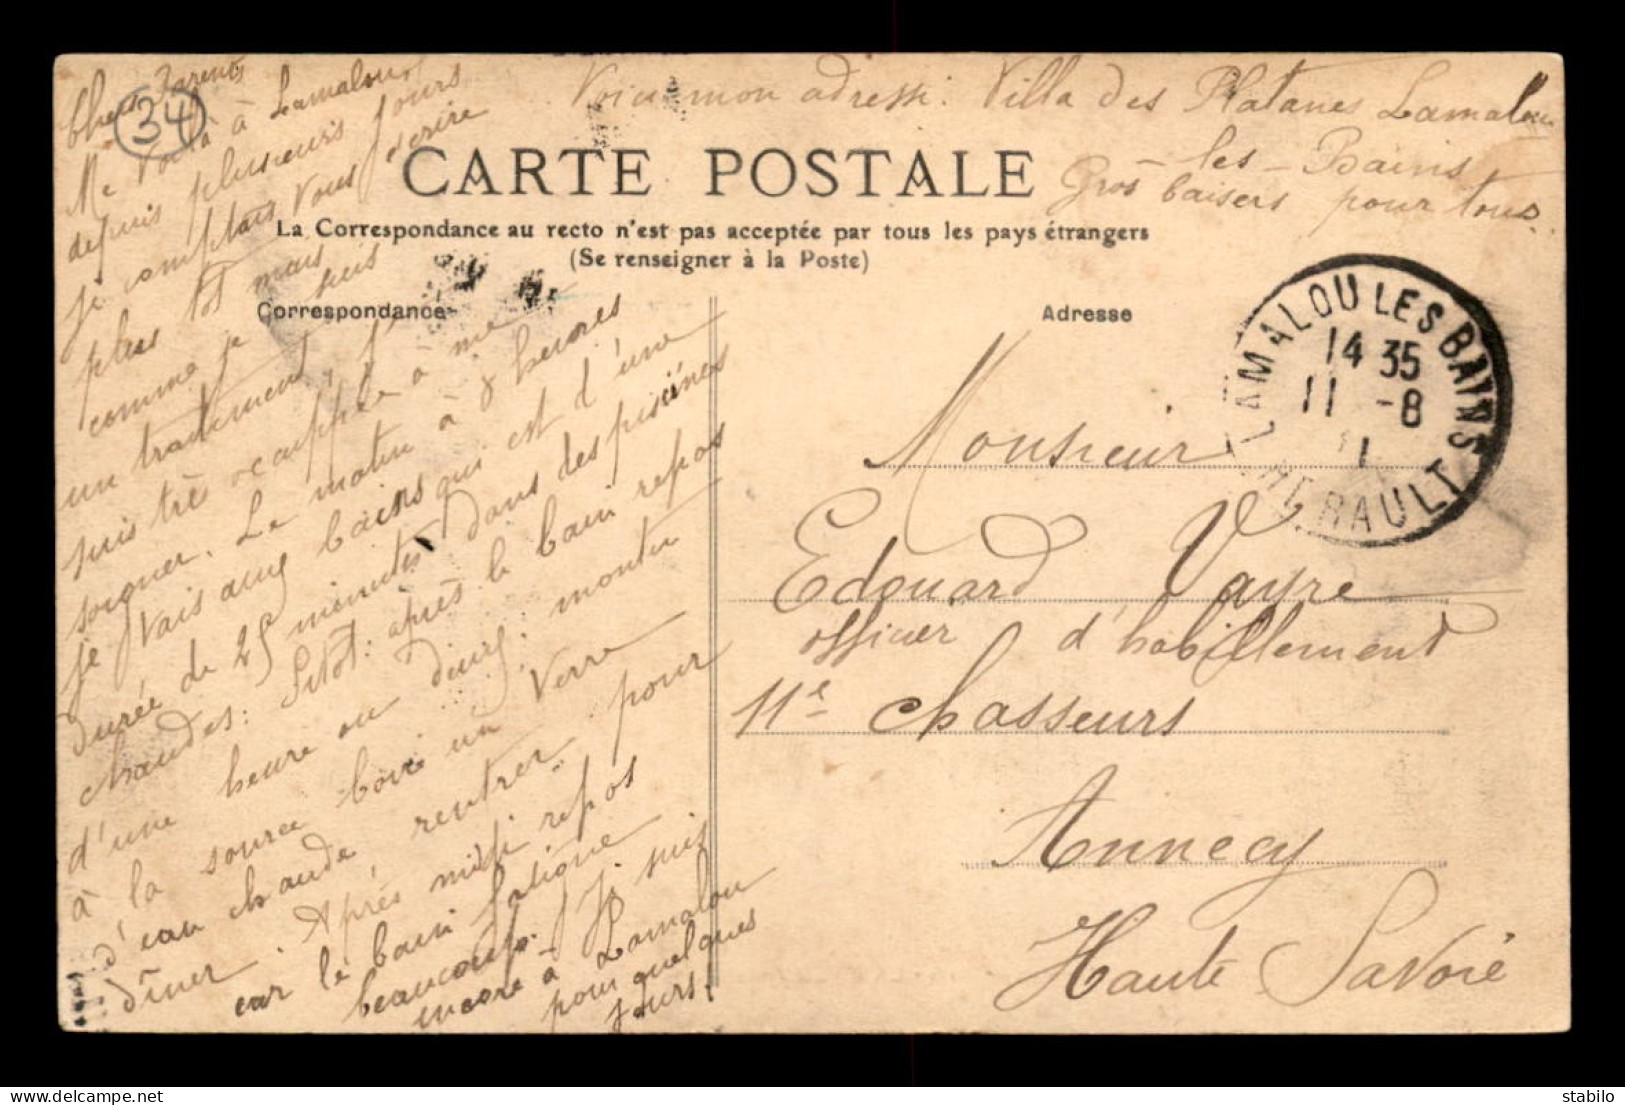 Chers Parents
Me voilà à Lamalou
depuis plusieurs jours
je comptais vous écrire
plus tôt mais
comme je suis
un traitement, je
suis très occuppée à me
soigner. Le matin à 8 heures
je vais aux bains qui est d'une
durée de 25 minutes dans des piscines
chaudes: Sitôt: après le bain repos
d'une heure ou deux; monter
à la source boire un verre
d'eau chaude, rentrer pour
dîner. Après midi repos
car le bain fatigue
beaucoup. Je suis
encore à Lamalou
pour quelques
jours!
34
Voici mon adresse: Villa des Platanes Lamalou
les-Bains
Gros baisers pour tous.
CARTE POSTALE
La Correspondance au recto n'est pas acceptée par tous les pays étrangers
(Se renseigner à la Poste)
Correspondance
Adresse
LAMALOU LES BAINS
14 35
11 -8
11
HERAULT
Monsieur
Edouard Vayre
officier d'habillement
11e chasseurs
Annecy
Haute Savoie
delcampe.net
stibulo